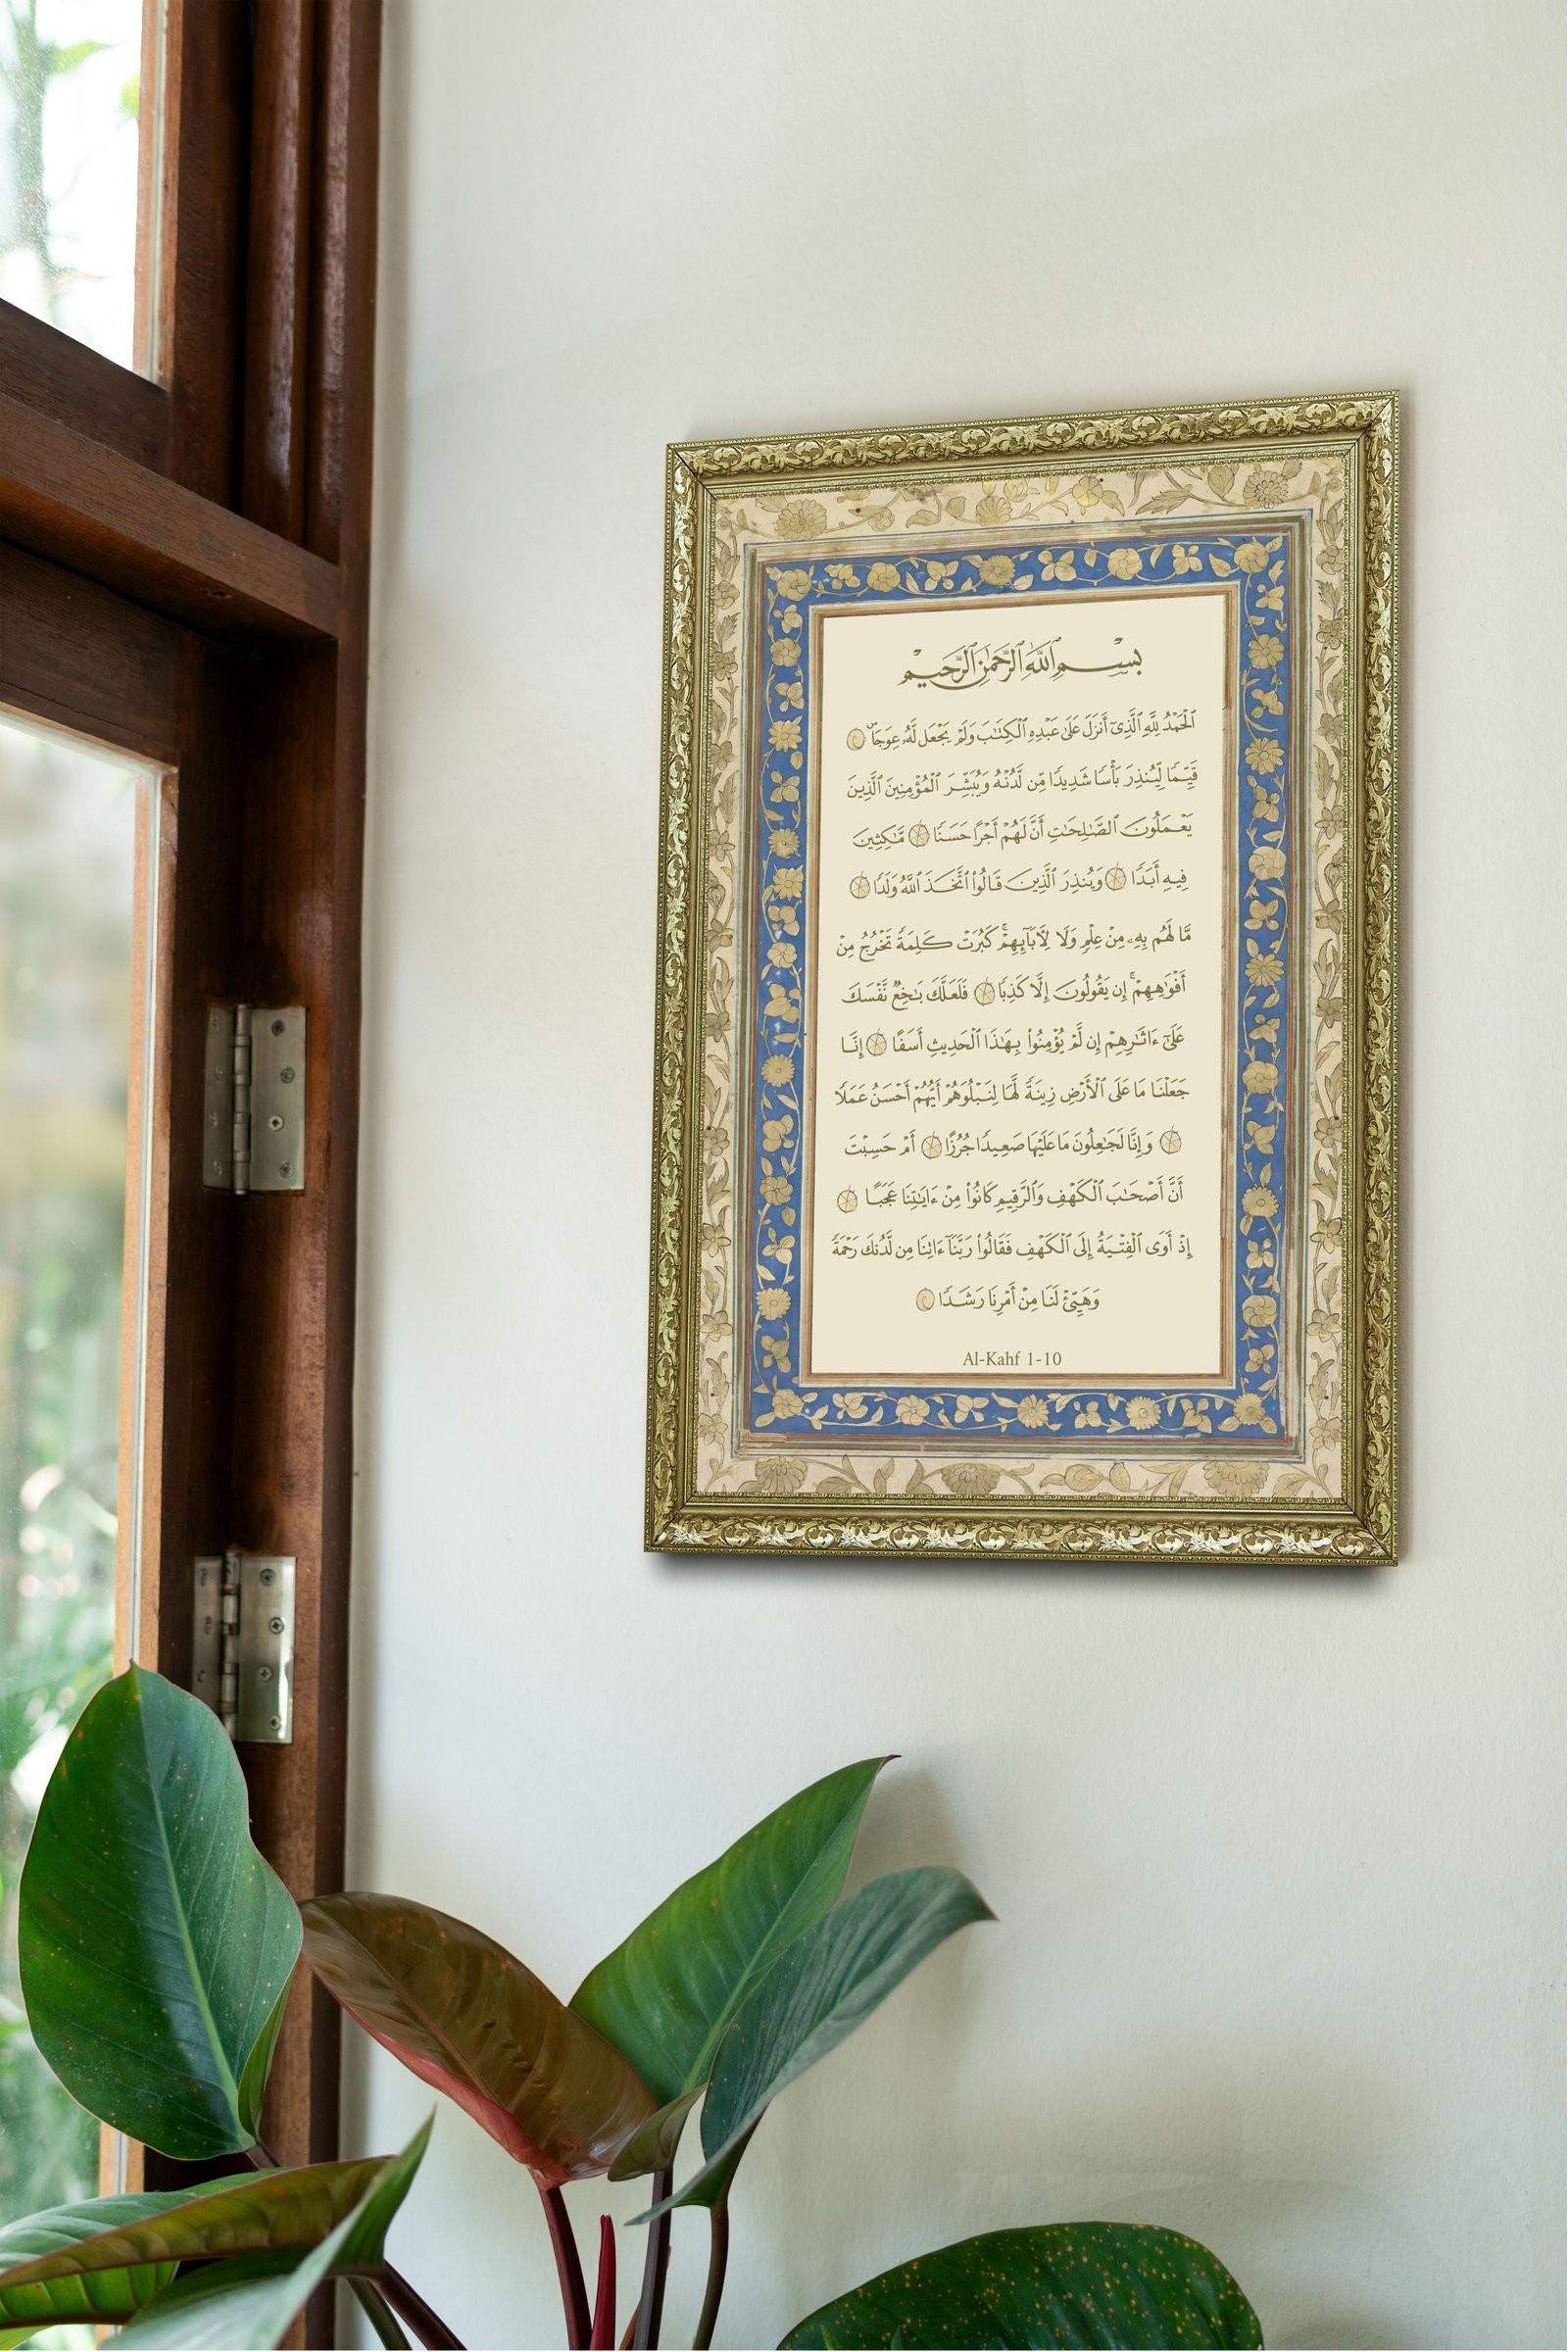 بِسْمِ ٱللَّهِ ٱلرَّحْمَٰنِ ٱلرَّحِيمِ
ٱلْحَمْدُ لِلَّهِ ٱلَّذِىٓ أَنزَلَ عَلَىٰ عَبْدِهِ ٱلْكِتَٰبَ وَلَمْ يَجْعَل لَّهُۥ عِوَجَاۜ
قَيِّمًا لِّيُنذِرَ بَأْسًا شَدِيدًا مِّن لَّدُنْهُ وَيُبَشِّرَ ٱلْمُؤْمِنِينَ ٱلَّذِينَ
يَعْمَلُونَ ٱلصَّٰلِحَٰتِ أَنَّ لَهُمْ أَجْرًا حَسَنًا مَّٰكِثِينَ
فِيهِ أَبَدًا وَيُنذِرَ ٱلَّذِينَ قَالُوا۟ ٱتَّخَذَ ٱللَّهُ وَلَدًا
مَّا لَهُم بِهِۦ مِنْ عِلْمٍ وَلَا لِـَٔابَآئِهِمْ ۚ كَبُرَتْ كَلِمَةً تَخْرُجُ مِنْ
أَفْوَٰهِهِمْ ۚ إِن يَقُولُونَ إِلَّا كَذِبًا فَلَعَلَّكَ بَٰخِعٌ نَّفْسَكَ
عَلَىٰٓ ءَاثَٰرِهِمْ إِن لَّمْ يُؤْمِنُوا۟ بِهَٰذَا ٱلْحَدِيثِ أَسَفًا إِنَّا
جَعَلْنَا مَا عَلَى ٱلْأَرْضِ زِينَةً لَّهَا لِنَبْلُوَهُمْ أَيُّهُمْ أَحْسَنُ عَمَلًا
وَإِنَّا لَجَٰعِلُونَ مَا عَلَيْهَا صَعِيدًا جُرُزًا أَمْ حَسِبْتَ
أَنَّ أَصْحَٰبَ ٱلْكَهْفِ وَٱلرَّقِيمِ كَانُوا۟ مِنْ ءَايَٰتِنَا عَجَبًا
إِذْ أَوَى ٱلْفِتْيَةُ إِلَى ٱلْكَهْفِ فَقَالُوا۟ رَبَّنَآ ءَاتِنَا مِن لَّدُنكَ رَحْمَةً
وَهَيِّئْ لَنَا مِنْ أَمْرِنَا رَشَدًا
Al-Kahf 1-10